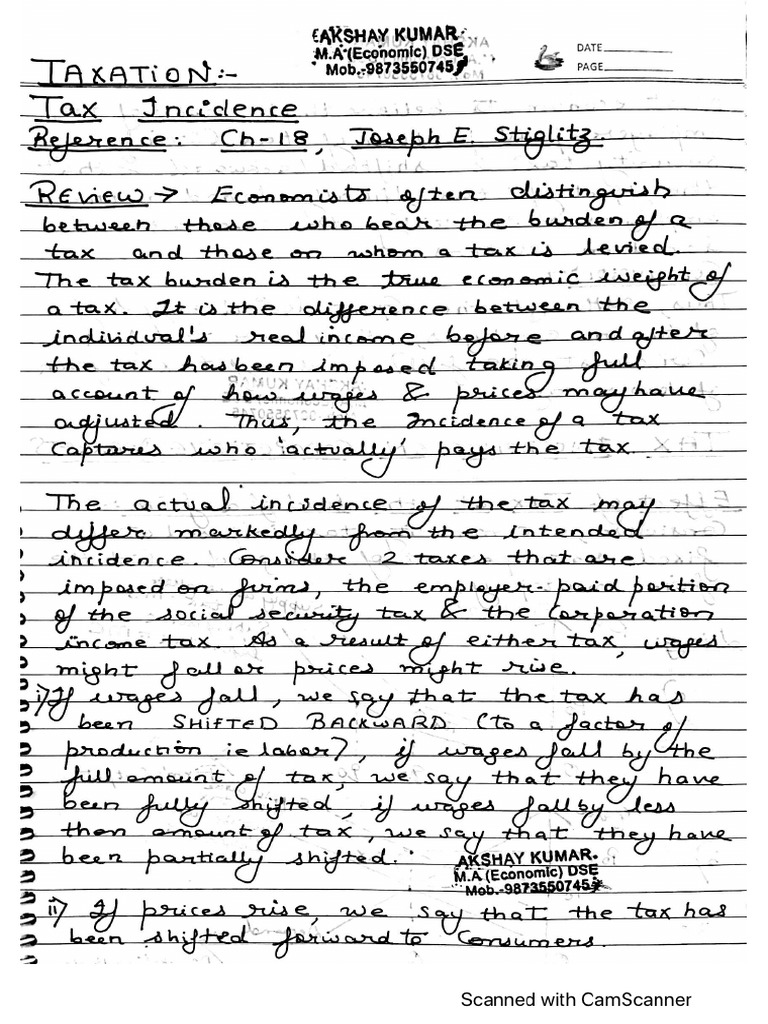 AKSHAY KUMAR
M.A (Economic) DSE
Mob.-9873550745
DATE
PAGE
TAXATION:-
Tax Incidence
Reference: Ch-18, Joseph E. Stiglitz.
REVIEW → Economists often distinguish
between those who bear the burden of a
tax and those on whom a tax is levied.
The tax burden is the true economic weight of
a tax. It is the difference between the
individual's real income before and after
the tax has been imposed taking full
account of how wages & prices may have
adjusted. Thus, the Incidence of a tax
Captures who 'actually' pays the tax.
The actual incidence of the tax may
differ markedly from the intended
incidence. Consider 2 taxes that are
imposed on firms, the employer-paid portion
of the social security tax & the Corporation
income tax. As a result of either tax, wages
might fall or prices might rise.
i) If wages fall, we say that the tax has
been SHIFTED BACKWARD (to a factor of
production ie labor), if wages fall by the
full amount of tax, we say that they have
been fully shifted, if wages fall by less
then amount of tax, we say that they have
been partially shifted.
AKSHAY KUMAR
M.A (Economic) DSE
Mob.-9873550745
ii) If prices rise, we say that the tax has
been shifted forward to Consumers.
Scanned with CamScanner